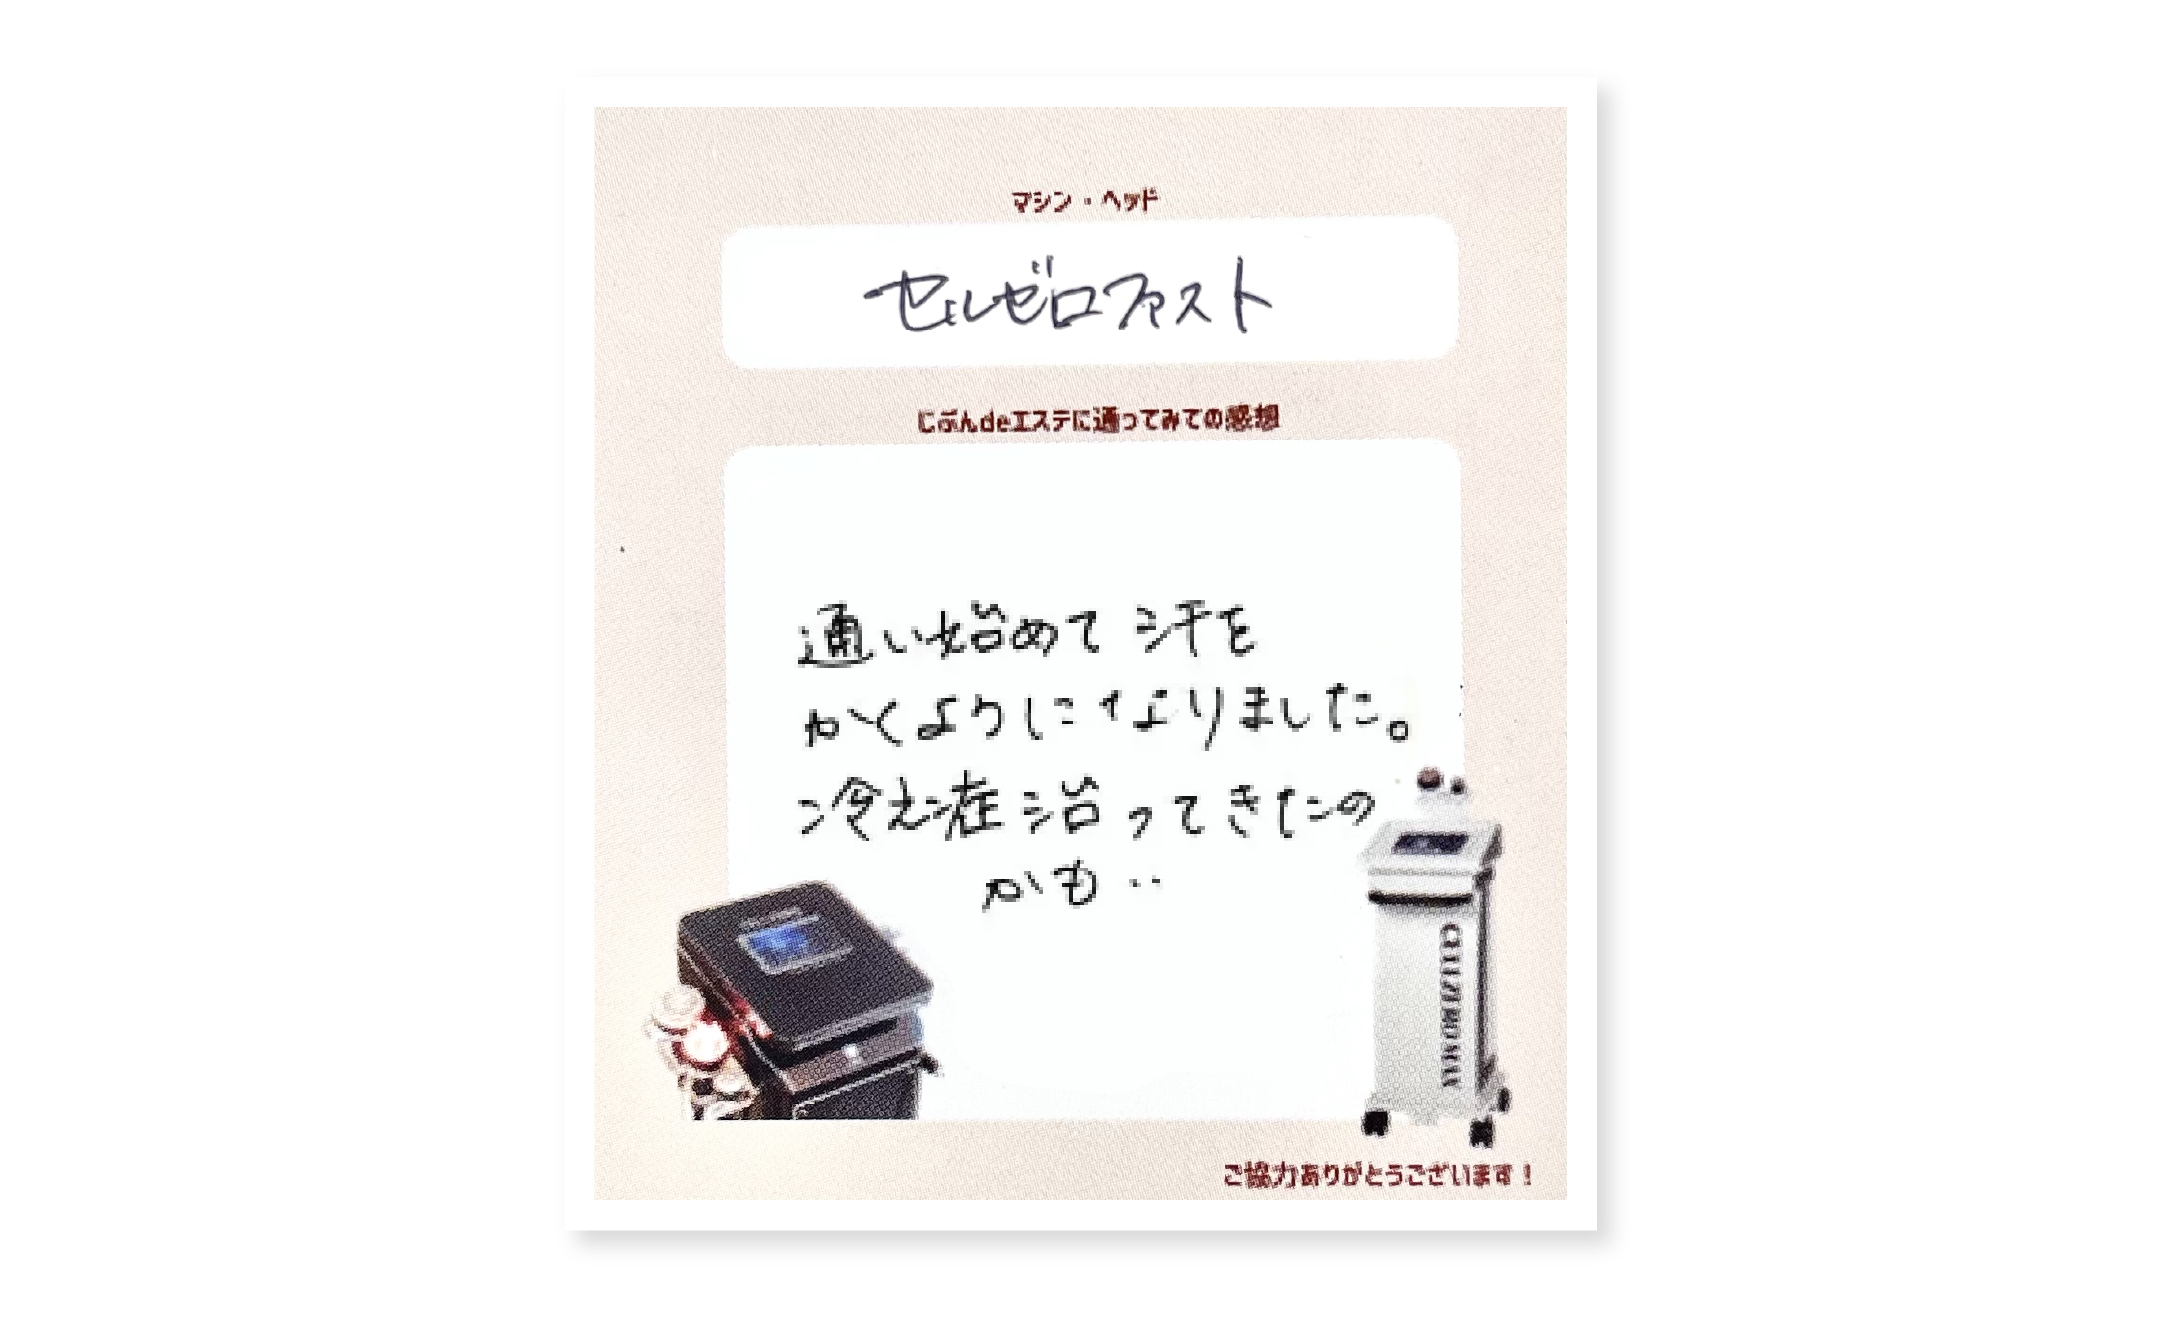 マシン・ヘッド
セルゼロファスト
じぶんdeエステに通ってみての感想
通い始めて汗を
かくようになりました。
冷え症治ってきたの
かも‥
CELLZERO MAX
ご協力ありがとうございます！